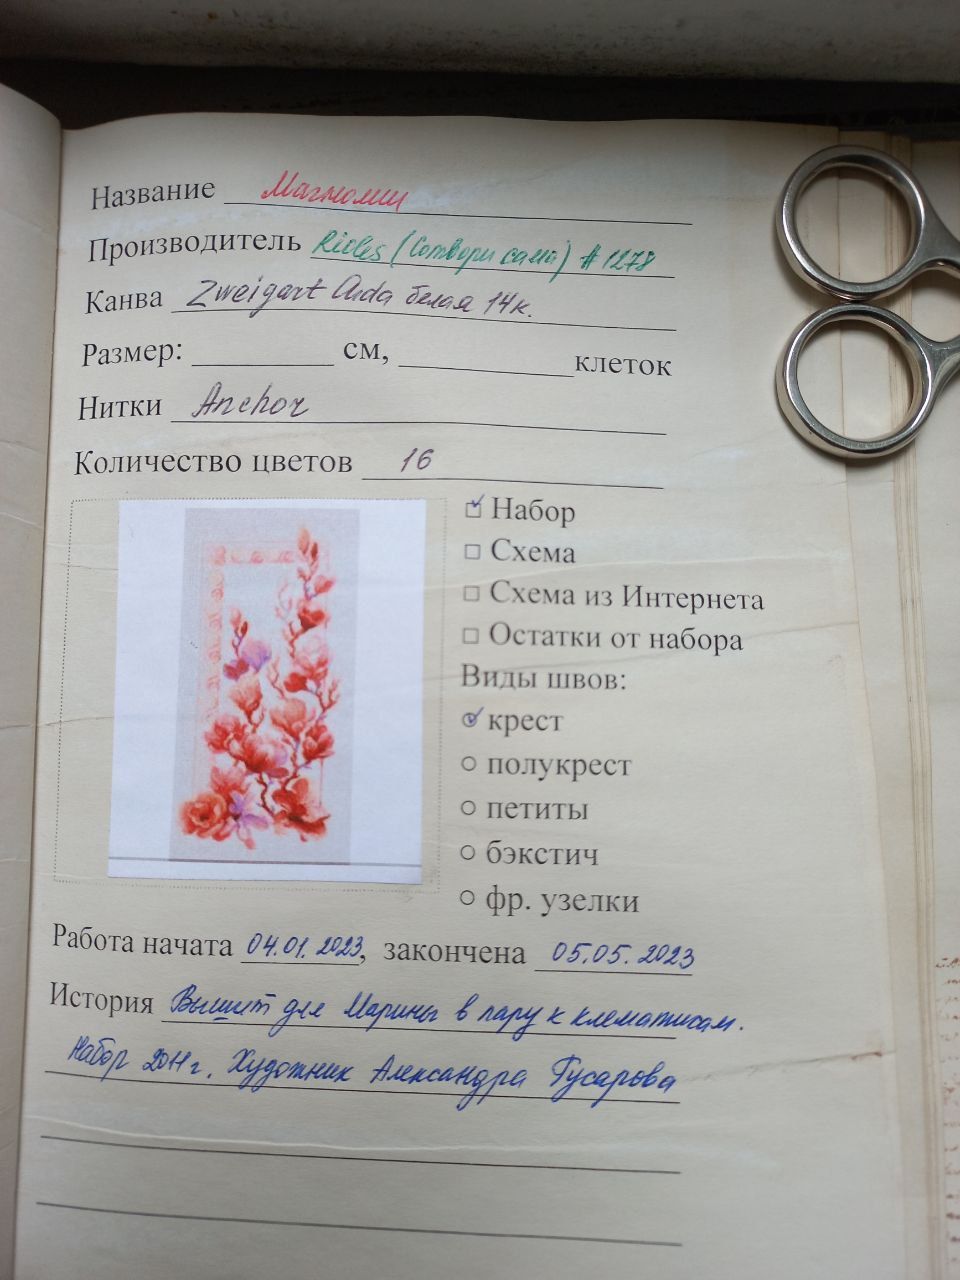 Название Магнолии
Производитель Riolis (Сотвори сама) # 1278
Канва Zweigart Aida белая 14к.
Размер: см, клеток
Нитки Anchor
Количество цветов 16
Набор
Схема
Схема из Интернета
Остатки от набора
Виды швов:
крест
полукрест
петиты
бэкстич
фр. узелки
Работа начата 04.01.2023, закончена 05.05.2023
История Вышит для Марины в пару к клематисам.
Набор 2011 г. Художник Александра Гусарова